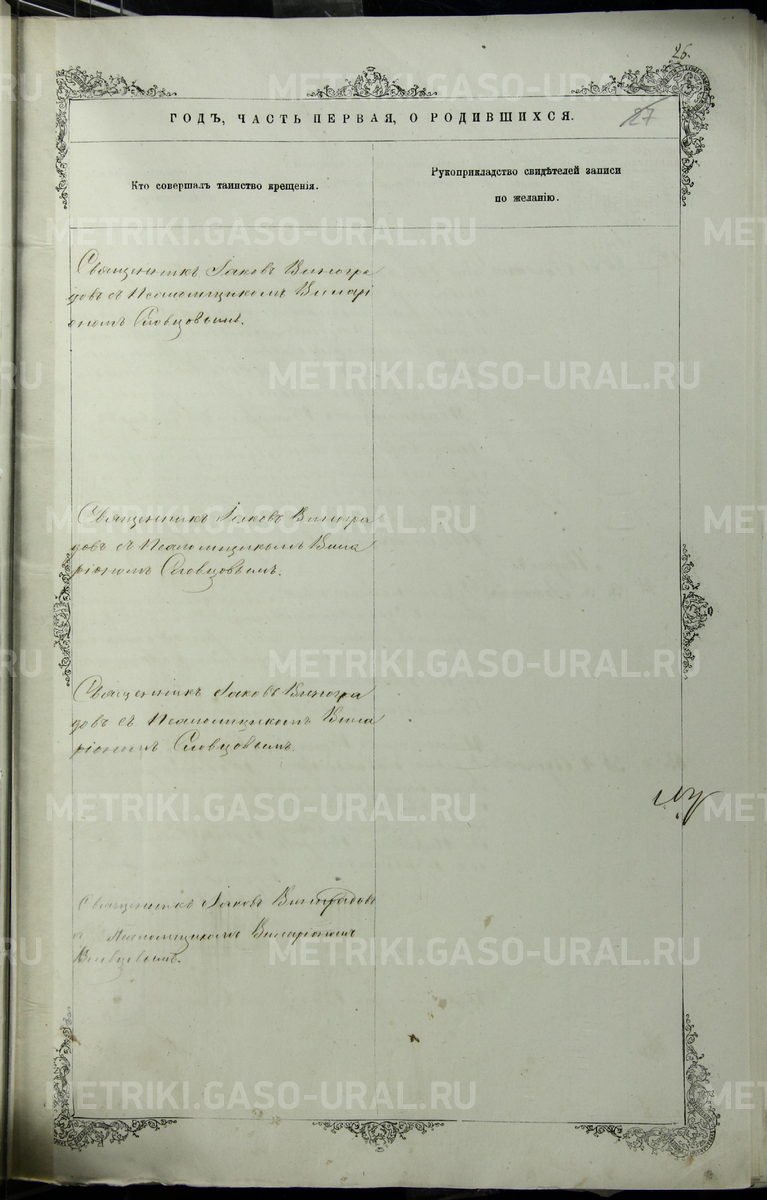 26.
ГОДЪ, ЧАСТЬ ПЕРВАЯ, О РОДИВШИХСЯ.
27
Кто совершалъ таинство крещенія.
Рукоприкладство свидѣтелей записи
по желанію.
Священникъ Іаковъ Виногра
довъ съ Псаломщикомъ Виларі
ономъ Словцовымъ.
Священникъ Іаковъ Виногра
довъ съ Псаломщикомъ Вила
ріономъ Словцовымъ.
Священникъ Іаковъ Виногра
довъ съ Псаломщикомъ Вила
ріономъ Словцовымъ.
Священникъ Іаковъ Виноградовъ
съ Псаломщикомъ Виларіономъ
METRIKI.GASO-URAL.RU